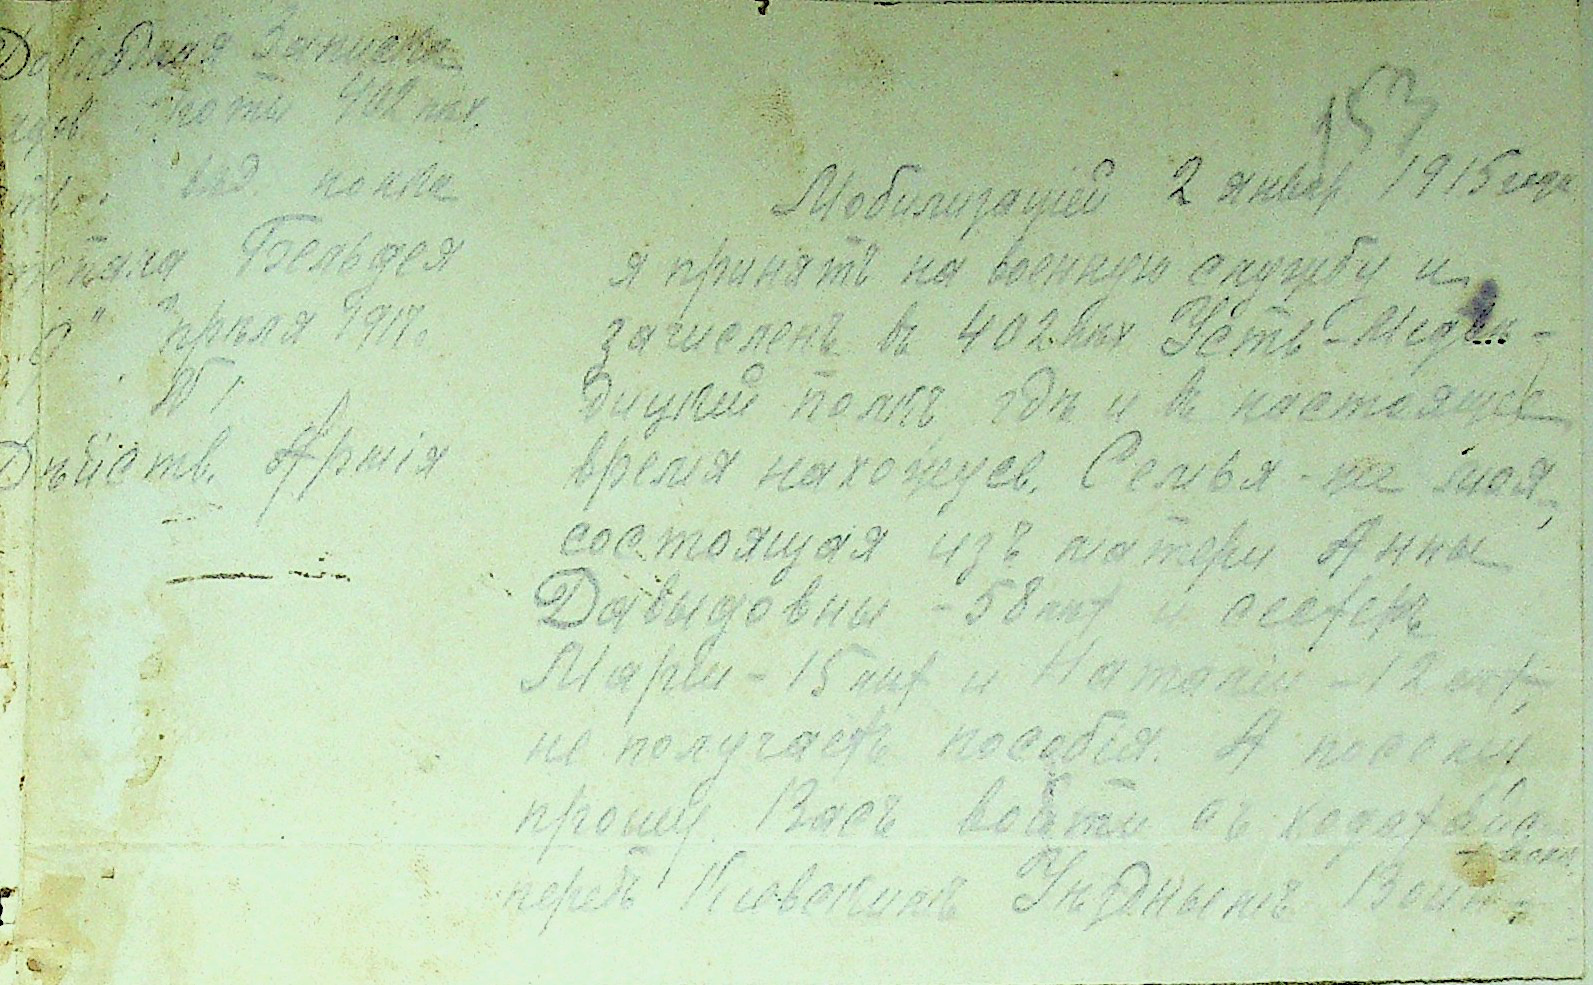 Докладная Записка
роты 402 пѣх.
полка
Бельдея
" Апрѣля 1917 г.
Дѣйств. Армія
153
Мобилизаціей 2 январ 1915 года
я принятъ на военную службу и
зачисленъ въ 402 пѣх Усть-Медвѣ-
дицкій полкъ гдѣ и въ настоящее
время нахожусь. Семья-же моя,
состоящая изъ матери Анны
Давыдовны - 58 лѣт и сестеръ
Маріи - 15 лѣт и Наталіи - 12 лѣт,
не получаетъ пособія. А посему
прошу Васъ войти съ ходатайс
твом
передъ Кіевскимъ Уѣзднымъ Воин-